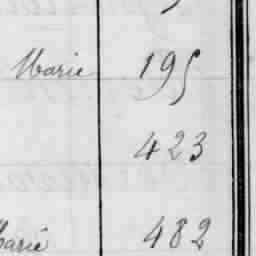 Marie 195
423
Marie 482